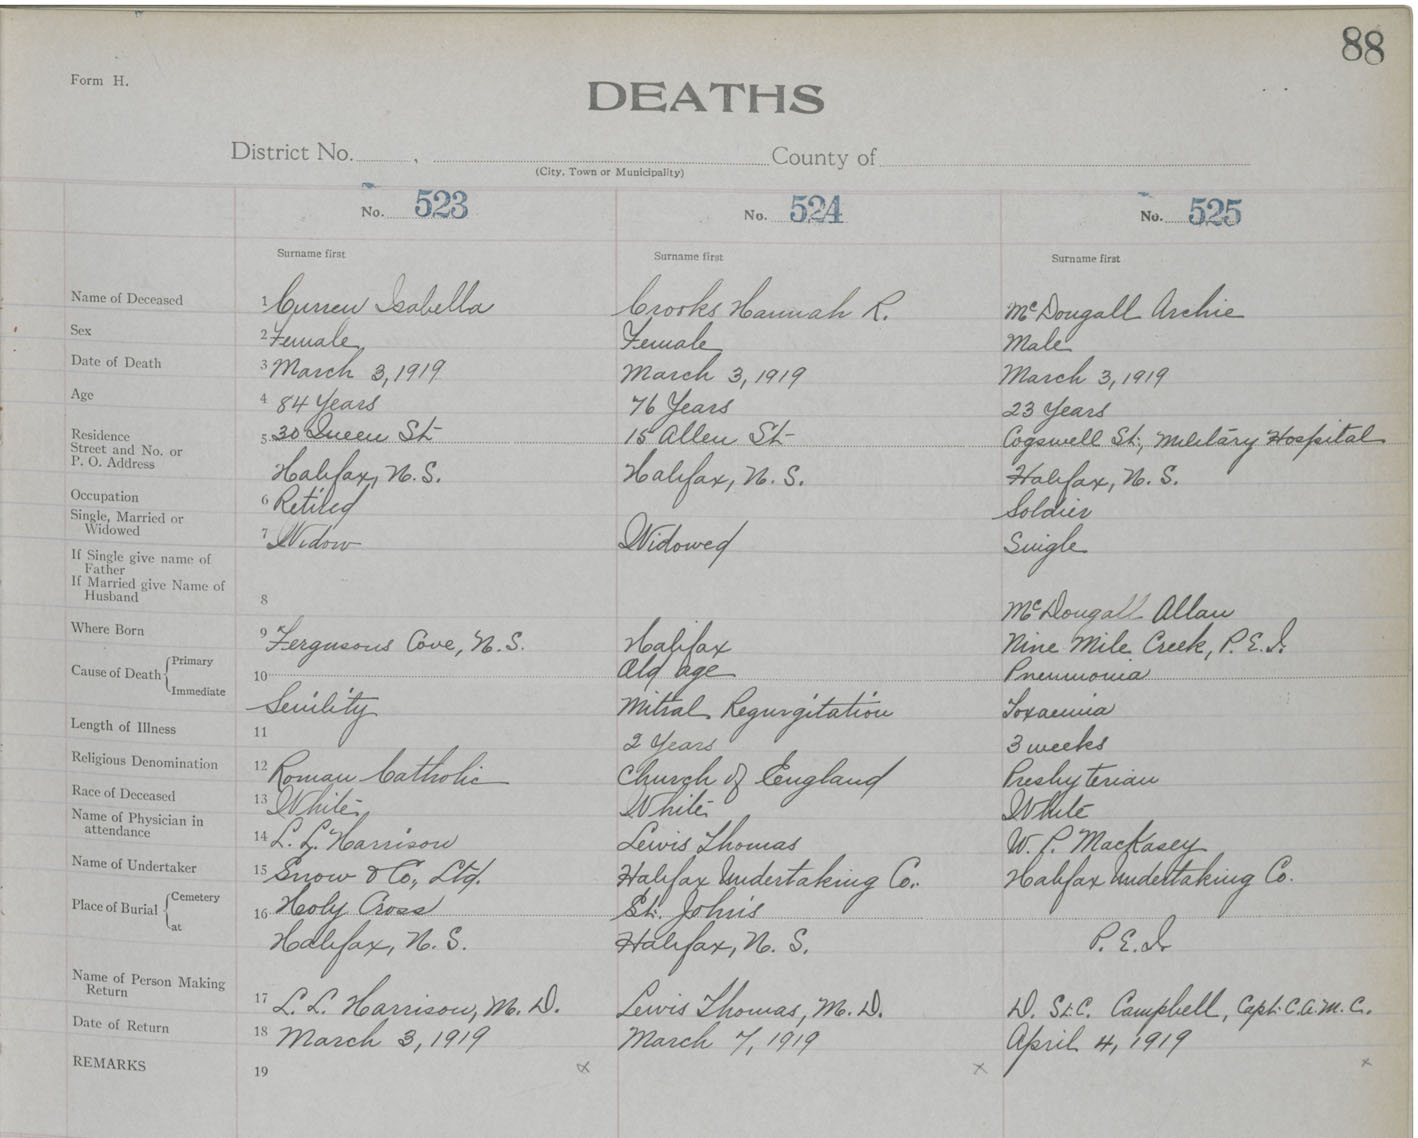 88
Form H.
DEATHS
District No. , County of
(City, Town or Municipality)
No. 523 No. 524 No. 525
Surname first Surname first Surname first
Name of Deceased 1 Curren Isabella Crooks Hannah R. McDougall Archie
Sex 2 Female Female Male
Date of Death 3 March 3, 1919 March 3, 1919 March 3, 1919
Age 4 84 Years 76 Years 23 Years
Residence 5 30 Queen St. 15 Allen St. Cogswell St., Military Hospital
Street and No. or
P. O. Address Halifax, N.S. Halifax, N.S. Halifax, N.S.
Occupation 6 Retired Soldier
Single, Married or
Widowed 7 Widow Widowed Single
If Single give name of
Father
If Married give Name of
Husband 8 McDougall Allan
Where Born 9 Fergusons Cove, N.S. Halifax Nine Mile Creek, P.E.I.
Cause of Death Primary 10 Old age Pneumonia
Immediate Senility Mitral Regurgitation Toxaemia
Length of Illness 11 2 Years 3 weeks
Religious Denomination 12 Roman Catholic Church of England Presbyterian
Race of Deceased 13 White White White
Name of Physician in
attendance 14 L. L. Harrison Lewis Thomas W. P. MacKasey
Name of Undertaker 15 Snow & Co., Ltd. Halifax Undertaking Co. Halifax Undertaking Co.
Place of Burial Cemetery 16 Holy Cross St. John's
at Halifax, N.S. Halifax, N.S. P.E.I.
Name of Person Making
Return 17 L. L. Harrison, M.D. Lewis Thomas, M.D. D. St.C. Campbell, Capt. C.A.M.C.
Date of Return 18 March 3, 1919 March 7, 1919 April 4, 1919
REMARKS 19 x x x